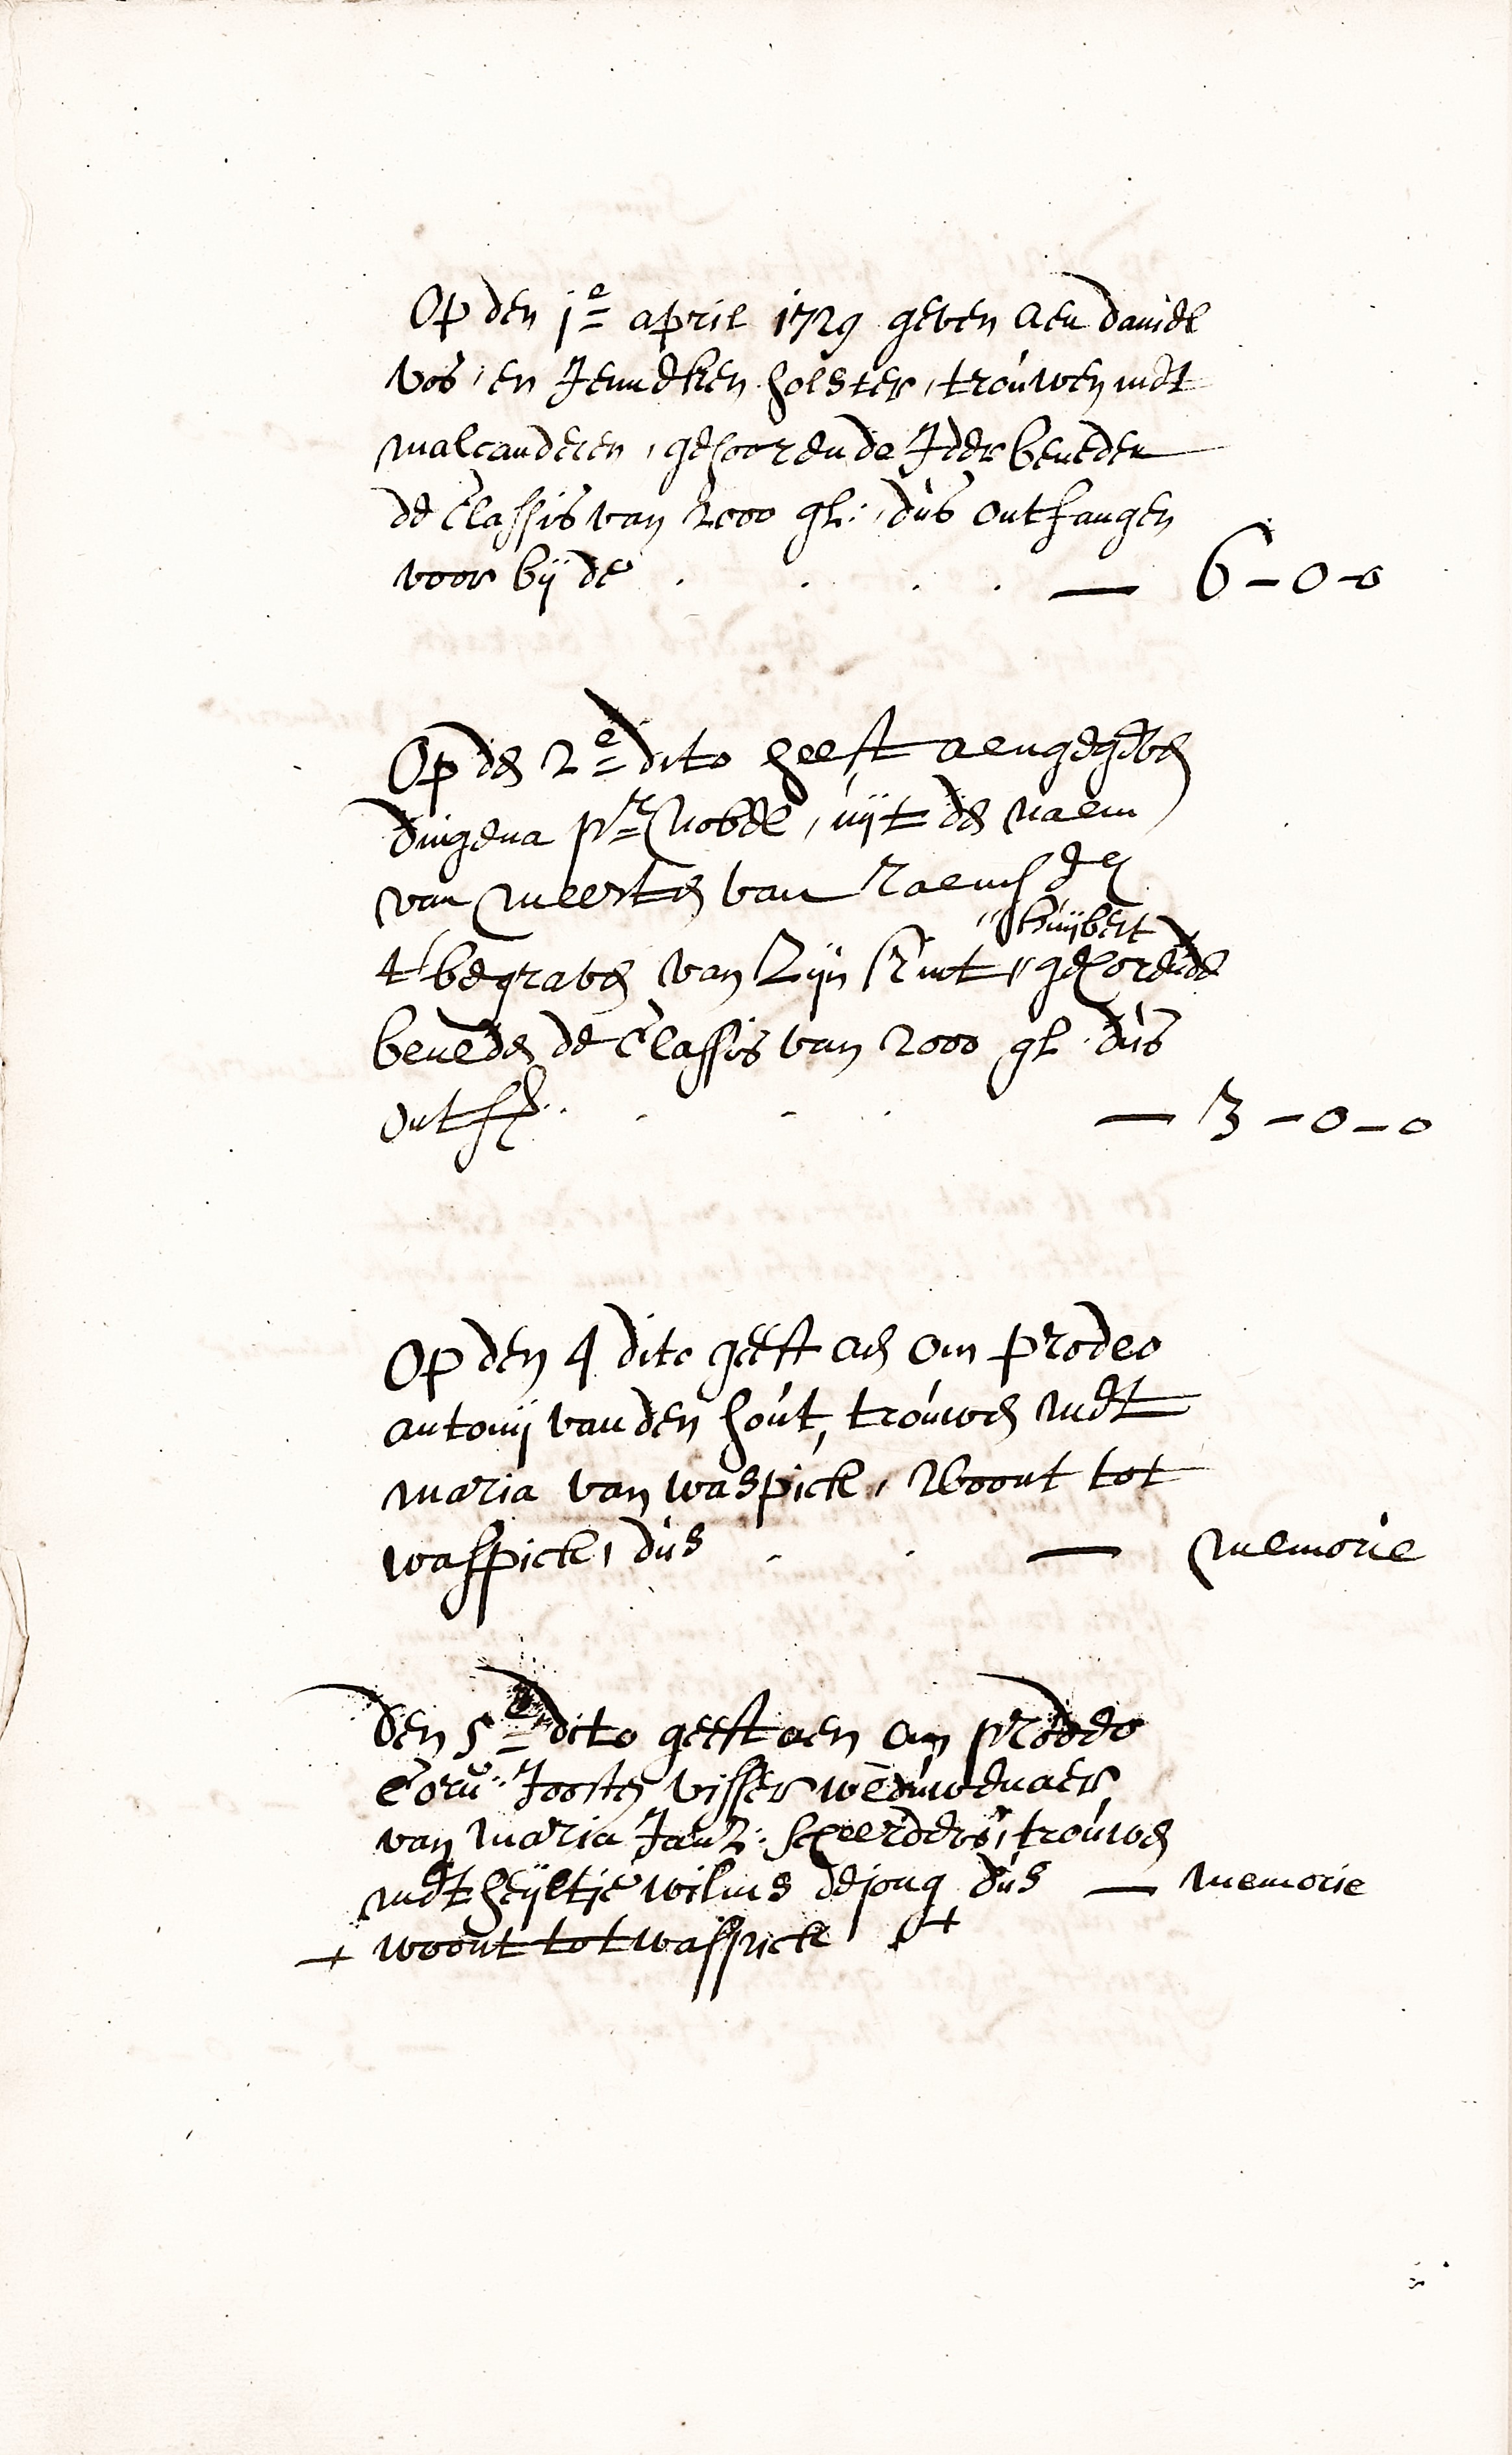 Op den 1e april 1729 geven aen daniel
vos, en Jenneken holster, trouwen met
malcanderen, gehoorende Ider beneden
de Classis van 2000 gl: dus ontfangen
voor bijde . . . . — 6-0-0
Op den 2e dito heeft aengegeven
dingena pr Nobel, uijt den naem
van Meerten van Raemsde
"huijbert
t begraven van Zijn kint " gehorende
beneden de Classis van 2000 gl. dus
ontf: . . . — 3-0-0
Op den 4 dito geeft aen om prodeo
antonij vanden hout, trouwen met
maria van waspick, Woont tot
waspick, dus . . — Memorie
den 5e dito geeft aen om prodeo
Corn: Joosten visser weduwenaer
van Maria Janz: scheerders, trouwen
met heijltje wilms dejong dus — Memorie
+ woont tot waspick +